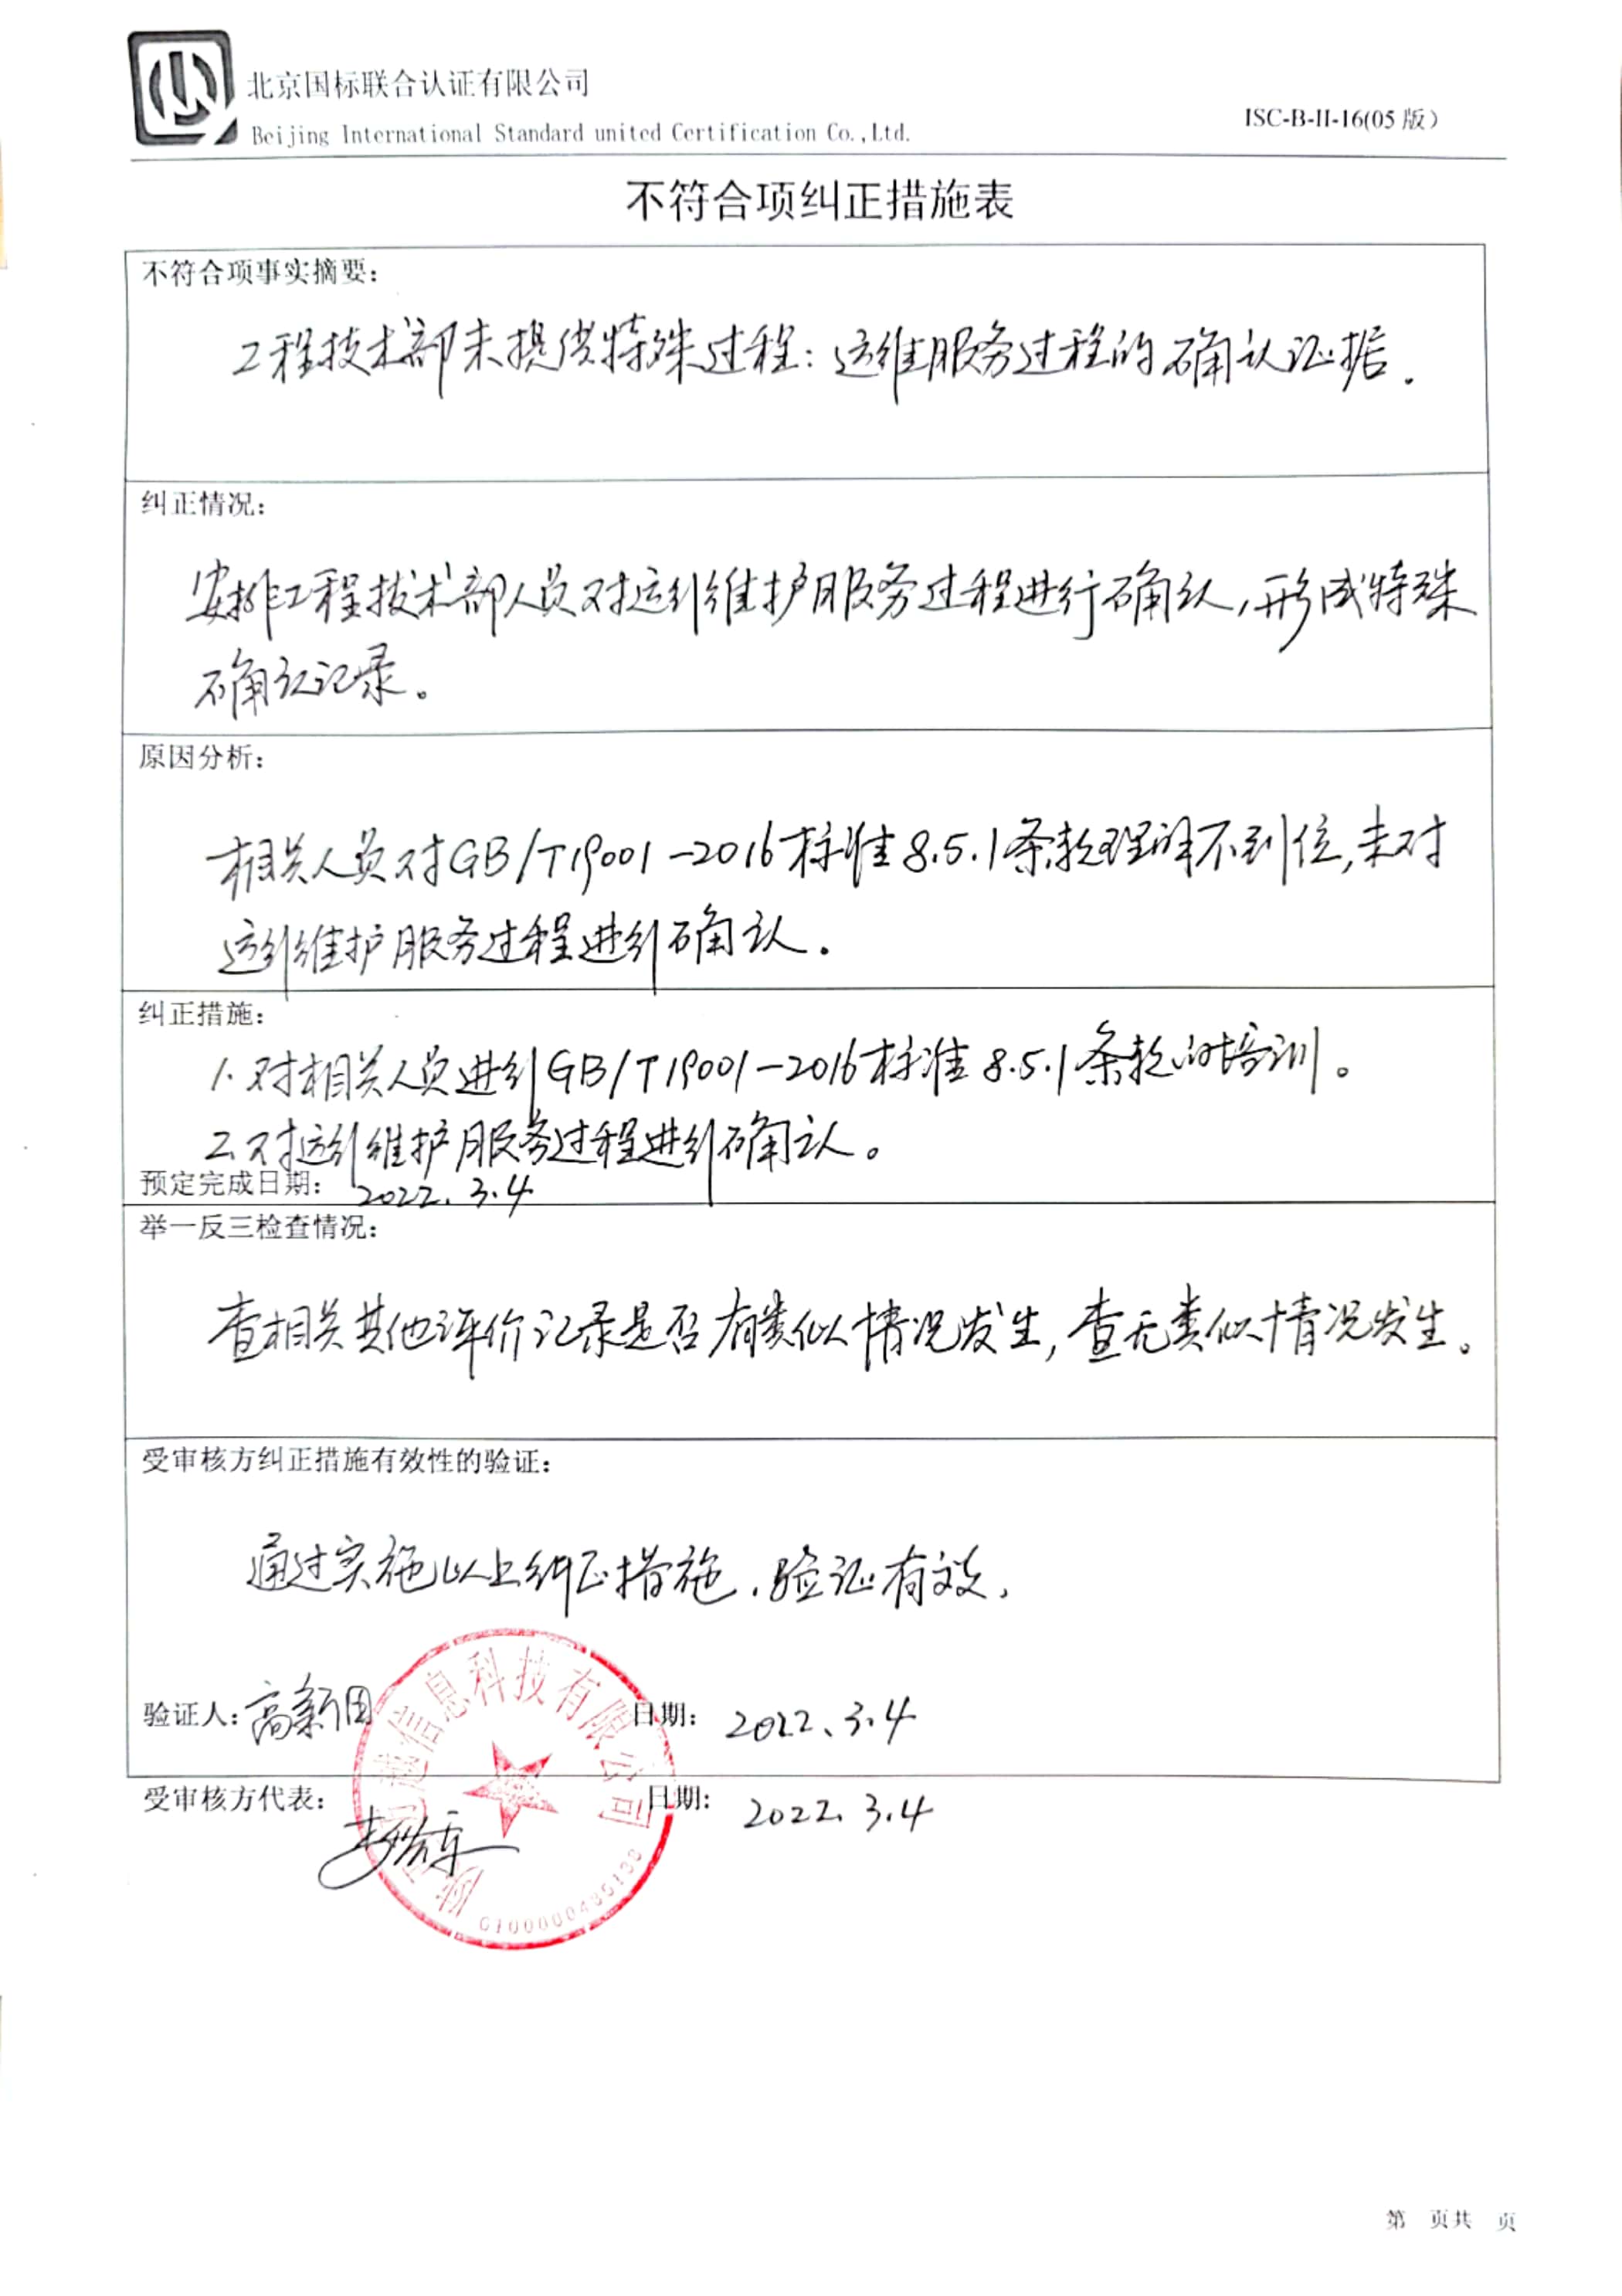 北京国标联合认证有限公司
Beijing International Standard united Certification Co.,Ltd.
ISC-B-II-16(05版)
不符合项纠正措施表
不符合项事实摘要：
工程技术部未提供特殊过程：运维服务过程的确认证据.
纠正情况：
安排工程技术部人员对运行维护服务过程进行确认,形成特殊
确认记录。
原因分析：
相关人员对GB/T19001-2016标准8.5.1条款理解不到位,未对
运行维护服务过程进行确认.
纠正措施：
1.对相关人员进行GB/T19001-2016标准8.5.1条款的培训。
2.对运行维护服务过程进行确认。
预定完成日期： 2022.3.4
举一反三检查情况：
查相关其他评价记录是否有类似情况发生,查无类似情况发生。
受审核方纠正措施有效性的验证：
通过实施以上纠正措施.验证有效.
验证人：高新国 日期： 2022、3.4
受审核方代表： 日期： 2022.3.4
信息科技有限公司
第 页共 页